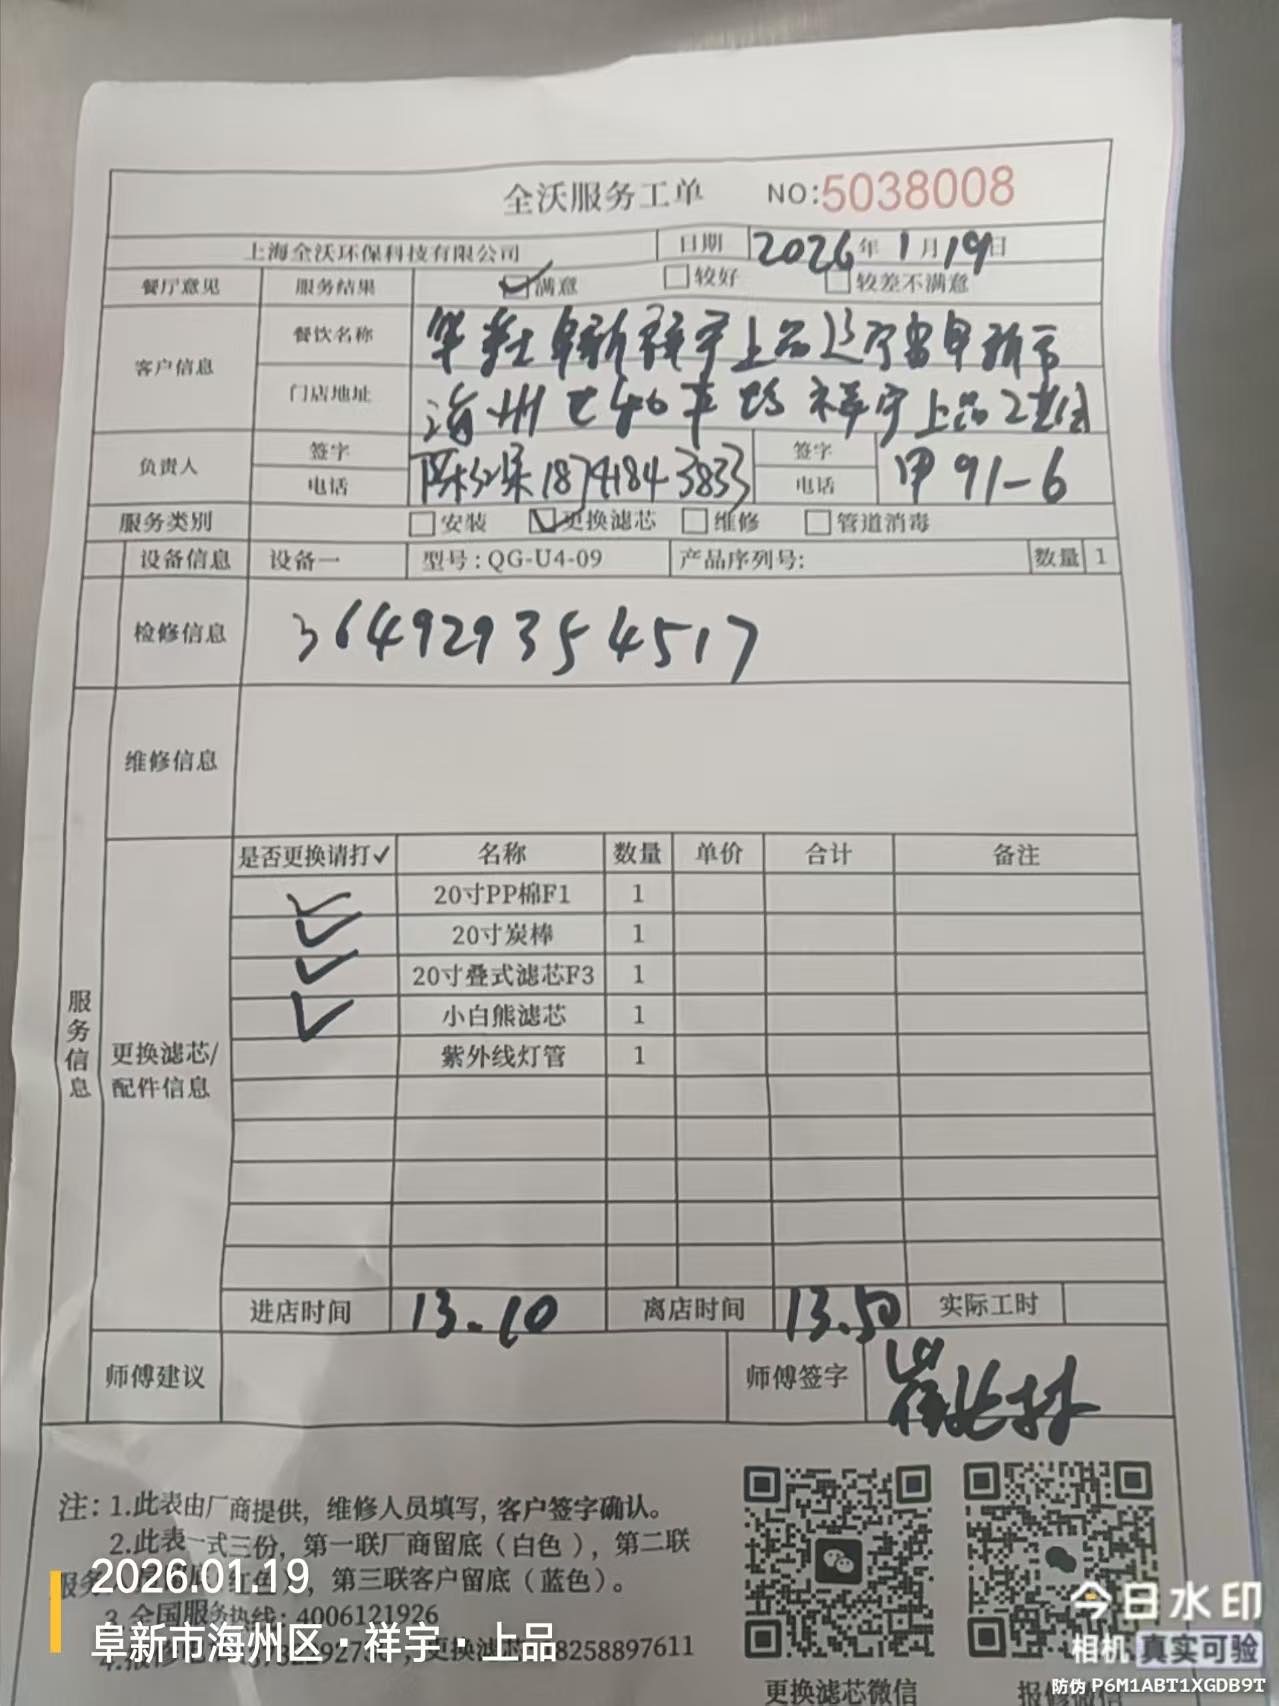 全沃服务工单 NO:5038008
上海全沃环保科技有限公司 日期 2026年1月19日
餐厅意见 服务结果 满意 较好 较差不满意
客户信息 餐饮名称 华莱士阜新祥宇上品辽宁省阜新市
门店地址 海州 祥宇上品
负责人 签字 签字
电话 18741843833 电话 甲91-6
服务类别 安装 更换滤芯 维修 管道消毒
设备信息 设备一 型号:QG-U4-09 产品序列号: 数量 1
检修信息 364929354517
维修信息
服务信息
更换滤芯/配件信息
是否更换请打✓ 名称 数量 单价 合计 备注
✓ 20寸PP棉F1 1
✓ 20寸炭棒 1
✓ 20寸叠式滤芯F3 1
✓ 小白熊滤芯 1
紫外线灯管 1
进店时间 13.10 离店时间 13.50 实际工时
师傅建议 师傅签字
注:1.此表由厂商提供,维修人员填写,客户签字确认。
2.此表一式三份,第一联厂商留底(白色),第二联
服务 (红色),第三联客户留底(蓝色)。
3.全国服务热线:4006121926
更换滤芯 8258897611
更换滤芯微信 报修微信
2026.01.19
阜新市海州区·祥宇·上品
今日水印
相机 真实可验
防伪 P6M1ABT1XGDB9T